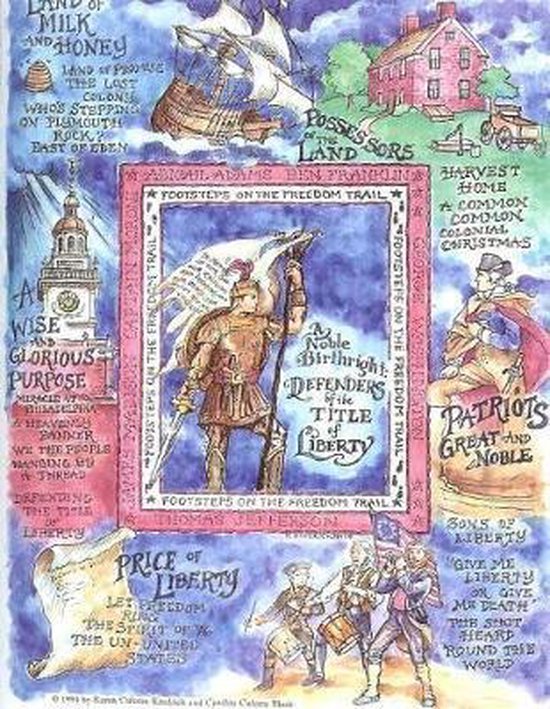 LAND OF
MILK
AND HONEY
LAND OF PROMISE
THE LOST
COLONY
WHO'S STEPPING
ON PLYMOUTH
ROCK?
EAST OF EDEN
POSSESSORS
OF THE
LAND
HARVEST
HOME
A COMMON
COMMON
COLONIAL
CHRISTMAS
ABIGAIL ADAMS BEN FRANKLIN
FOOTSTEPS ON THE FREEDOM TRAIL
JAMES MADISON CAPTAIN MORONI
FOOTSTEPS ON THE FREEDOM TRAIL
FOOTSTEPS ON THE FREEDOM TRAIL
GEORGE WASHINGTON
A
Noble
Birthright:
DEFENDERS
of the
TITLE
of
LIBERTY
FOOTSTEPS ON THE FREEDOM TRAIL
THOMAS JEFFERSON
A
WISE
AND
GLORIOUS
PURPOSE
MIRACLE AT
PHILADELPHIA
A HEAVENLY
BANNER
WE THE PEOPLE
HANGING BY
A THREAD
DEFENDING
THE TITLE
OF
LIBERTY
PATRIOTS
GREAT AND
NOBLE
SONS OF
LIBERTY
"GIVE ME
LIBERTY
OR GIVE
ME DEATH"
THE SHOT
HEARD
'ROUND THE
WORLD
PRICE OF
LIBERTY
LET FREEDOM
RING
THE SPIRIT OF '76
THE UN-UNITED
STATES
© 1994 by Karen and Cynthia